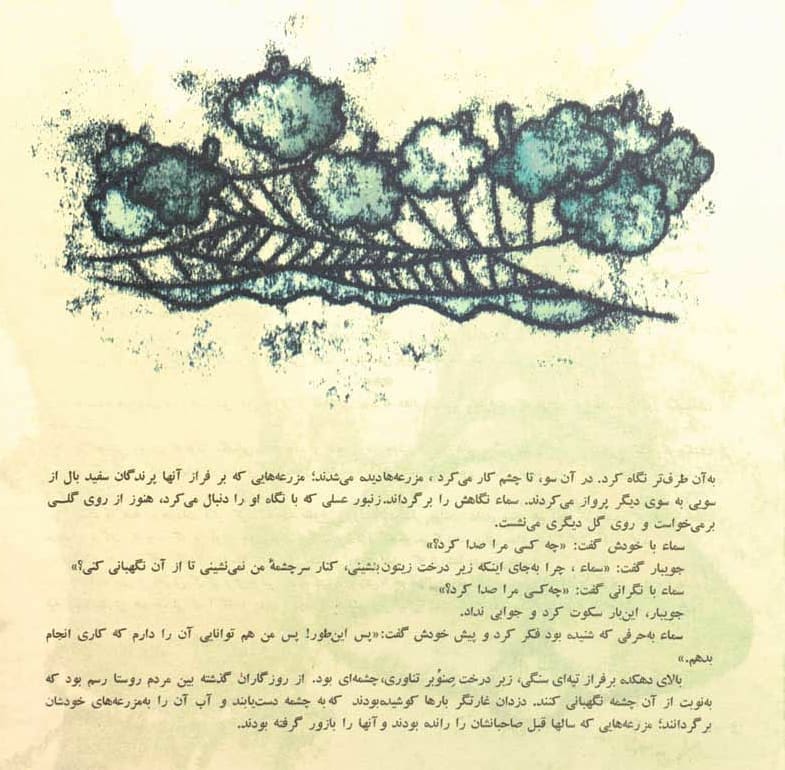 به‌آن طرف‌تر نگاه کرد. در آن سو، تا چشم کار می‌کرد ، مزرعه‌هادیده می‌شدند؛ مزرعه‌هایی که بر فراز آنها پرندگان سفید بال از
سویی به سوی دیگر پرواز می‌کردند. سماء نگاهش را برگرداند. زنبور عسلی که با نگاه او را دنبال می‌کرد، هنوز از روی گلـــی
برمی‌خواست و روی گل دیگری می‌نشست.
سماء با خودش گفت: «چه کسی مرا صدا کرد؟»
جویبار گفت: «سماء ، چرا به‌جای اینکه زیر درخت زیتون بنشینی، کنار سرچشمهٔ من نمی‌نشینی تا از آن نگهبانی کنی؟»
سماء با نگرانی گفت: «چه‌کسی مرا صدا کرد؟»
جویبار، این‌بار سکوت کرد و جوابی نداد.
سماء به‌حرفی که شنیده بود فکر کرد و پیش خودش گفت:«پس این‌طور! پس من هم توانایی آن را دارم که کاری انجام
بدهم.»
بالای دهکده برفراز تپه‌ای سنگی، زیر درخت صِنوُبر تناوری،چشمه‌ای بود. از روزگاران گذشته بین مردم روستا رسم بود که
به‌نوبت از آن چشمه نگهبانی کنند. دزدان غارتگر بارها کوشیده‌بودند که به چشمه دست‌یابند و آب آن را به‌مزرعه‌های خودشان
برگردانند؛ مزرعه‌هایی که سالها قبل صاحبانشان را رانده بودند و آنها را بازور گرفته بودند.